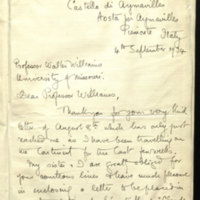 Castello di Aymavilles
Aosta per Aymavilles
Piemonte Italy
4th September 1914
Professor Walter Williams
University of Missouri.
Dear Professor Williams,
Thank you for your very kind
letter of August 8th which has only just
reached me as I have been travelling on
the Continent for the last few weeks.
My sister & I are greatly obliged for
your courteous lines & have much pleasure
in enclosing a letter to be placed in